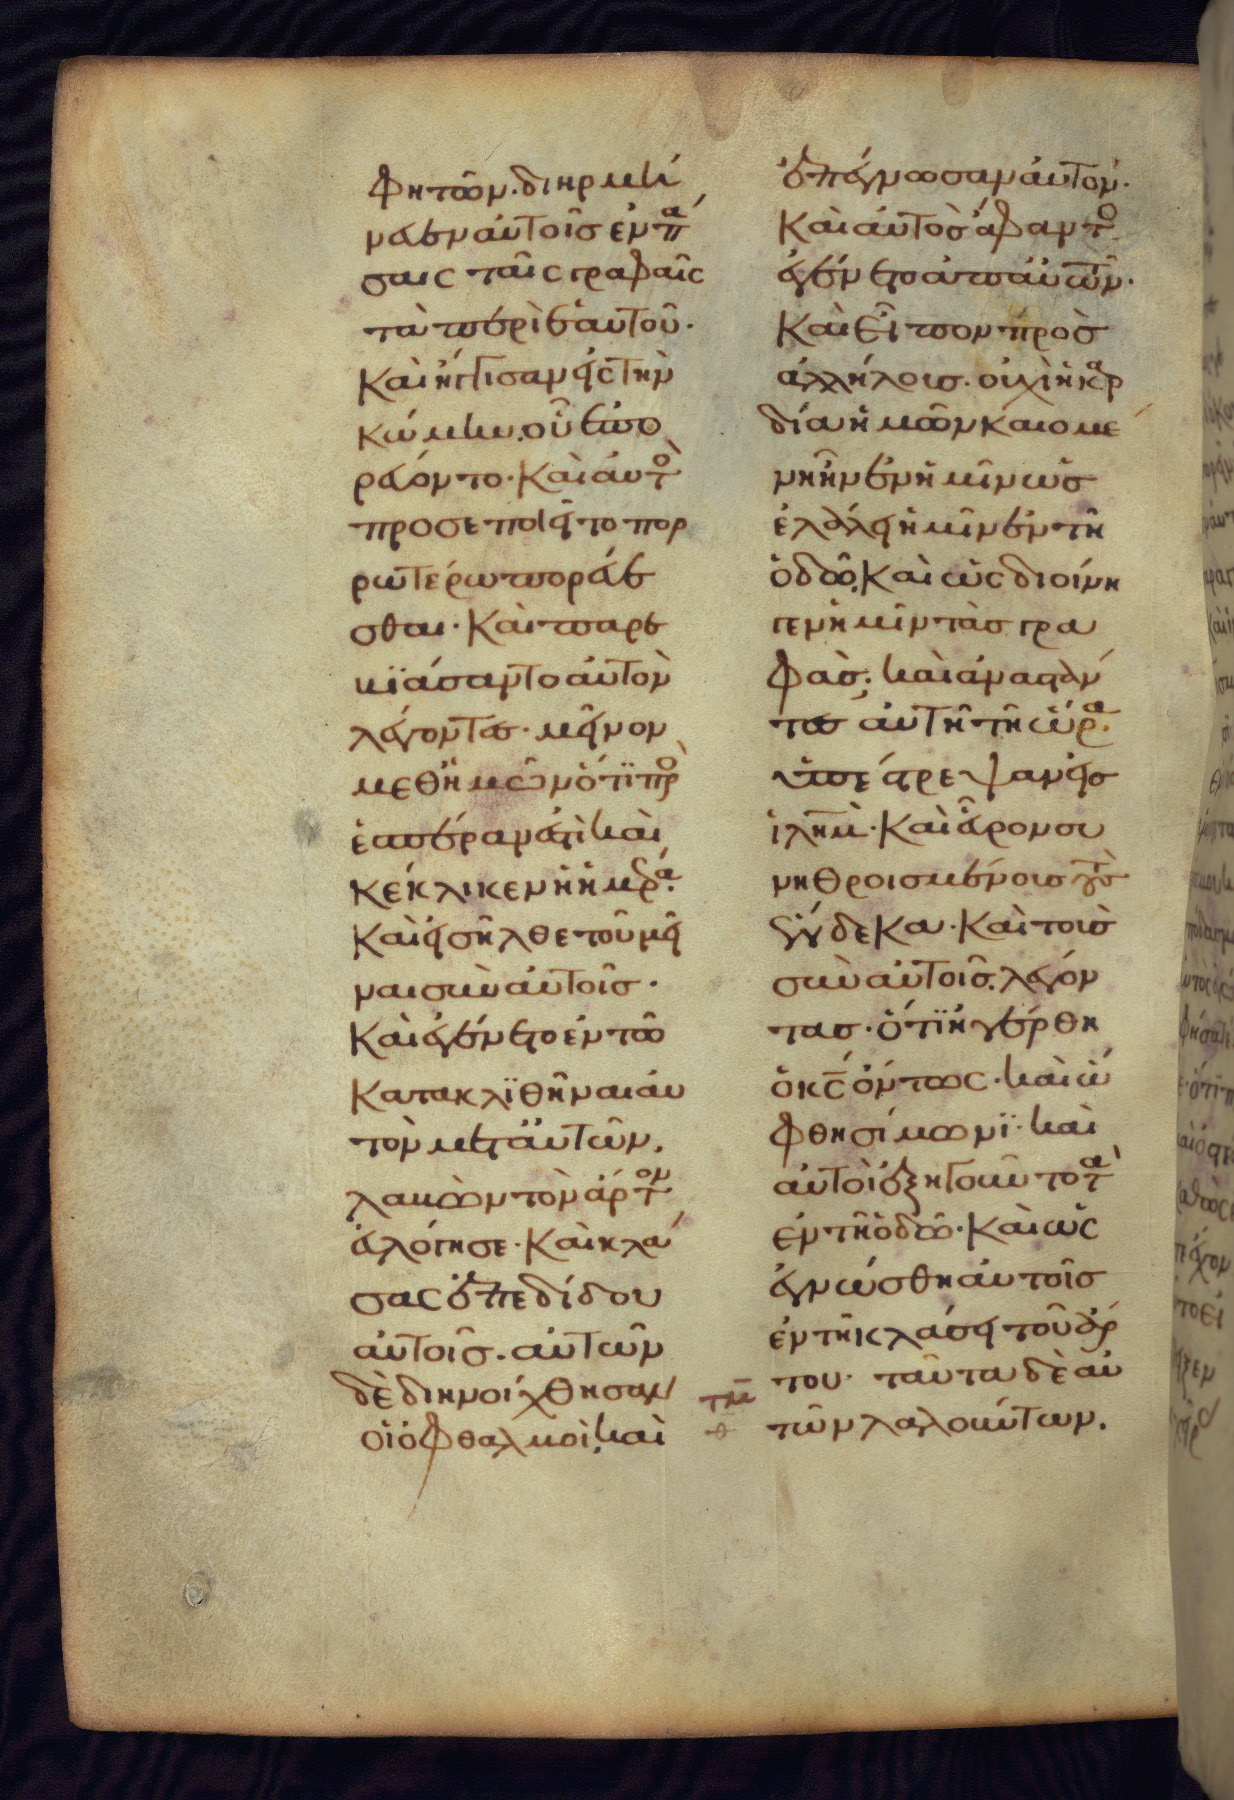 φητῶν· διηρμή
νευεν αὐτοῖς ἐν πά
σαις ταῖς γραφαῖς
τὰ περὶ ἑαυτοῦ·
Καὶ ἤγγισαν εἰς τὴν
κώμην, οὗ ἐπο
ρεύοντο· Καὶ αὐτὸ
προσεποιεῖτο πορ
ρωτέρω πορεύε
σθαι· Καὶ παρε
βϊάσαντο αὐτὸν
λέγοντες· μεῖνον
μεθ ἡμῶν ὅτϊ πρὸ
ἑσπέραν ἐστὶ καὶ
κέκλικεν ἡ ἡμρά·
Καὶ εἰσῆλθε τοῦ μεῖ
ναι σὺν αὐτοῖς·
Καὶ ἐγένετο ἐν τῶ
κατακλϊθῆναι αὐ
τὸν μετ αὐτῶν,
λαβὼν τὸν ἄρτον
εὐλόγησε· Καὶ κλά
σας ἐπεδίδου
αὐτοῖς. αὐτῶν
δὲ διηνοίχθησαν
οἱ ὀφθαλμοὶ, καὶ
ἐπέγνωσαν αὐτόν·
Καὶ αὐτὸς ἄφαντο
ἐγένετο ἀπ αὐτῶν·
Καὶ εἶπον πρὸς
ἀλλήλοις. οὐχὶ ἡ καρ
δία ἡμῶν καιομέ
νη ἦν ἐν ἡμῖν ὡς
ἐλάλει ἡμῖν ἐν τῆ
ὁδῶ, Καὶ ὡς διοίνη
γεν ἡμῖν τὰς γρα
φὰς; καὶ ἀναστάν
τες αὐτῆ τῆ ὥρα·
ὑπέστρεψαν εἰς
ἱλημ· Καὶ εὗρον συ
νηθροισμένοις τοὺς
ἕνδεκα· Καὶ τοῖς
σὺν αὐτοῖς, λέγον
τας· ὅτϊ ἠγέρθη
ὁ κς ὄντως· καὶ ὤ
φθη σίμωνϊ· καὶ
αὐτοὶ ἐξηγοῦντο τὰ
ἐν τῆ ὁδῶ· Καὶ ὡς
ἐγνώσθη αὐτοῖς
ἐν τῆ κλάσει τοῦ ἄρ
του· ταῦτα δὲ αὐ
τῶν λαλούντων.